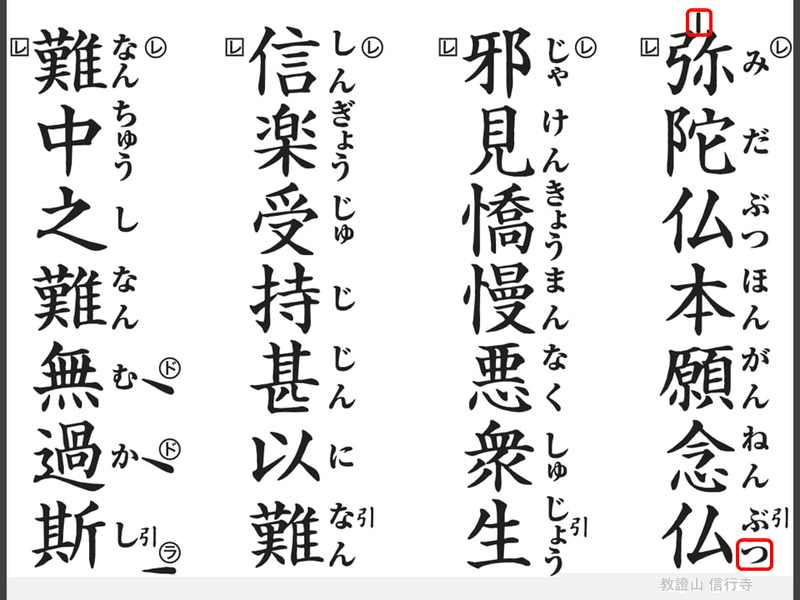 ㋹ み だ ぶつ ほん がん ねん ぶつ 引
レ 弥陀仏本願念仏
㋹ じゃ けん きょう まん なく しゅ じょう 引
レ 邪見憍慢悪衆生
㋹ しん ぎょう じゅ じ じん に なん 引
レ 信楽受持甚以難
㋹ なん ちゅう し なん む ド か ド し 引 ㋶
レ 難中之難無過斯
教證山 信行寺